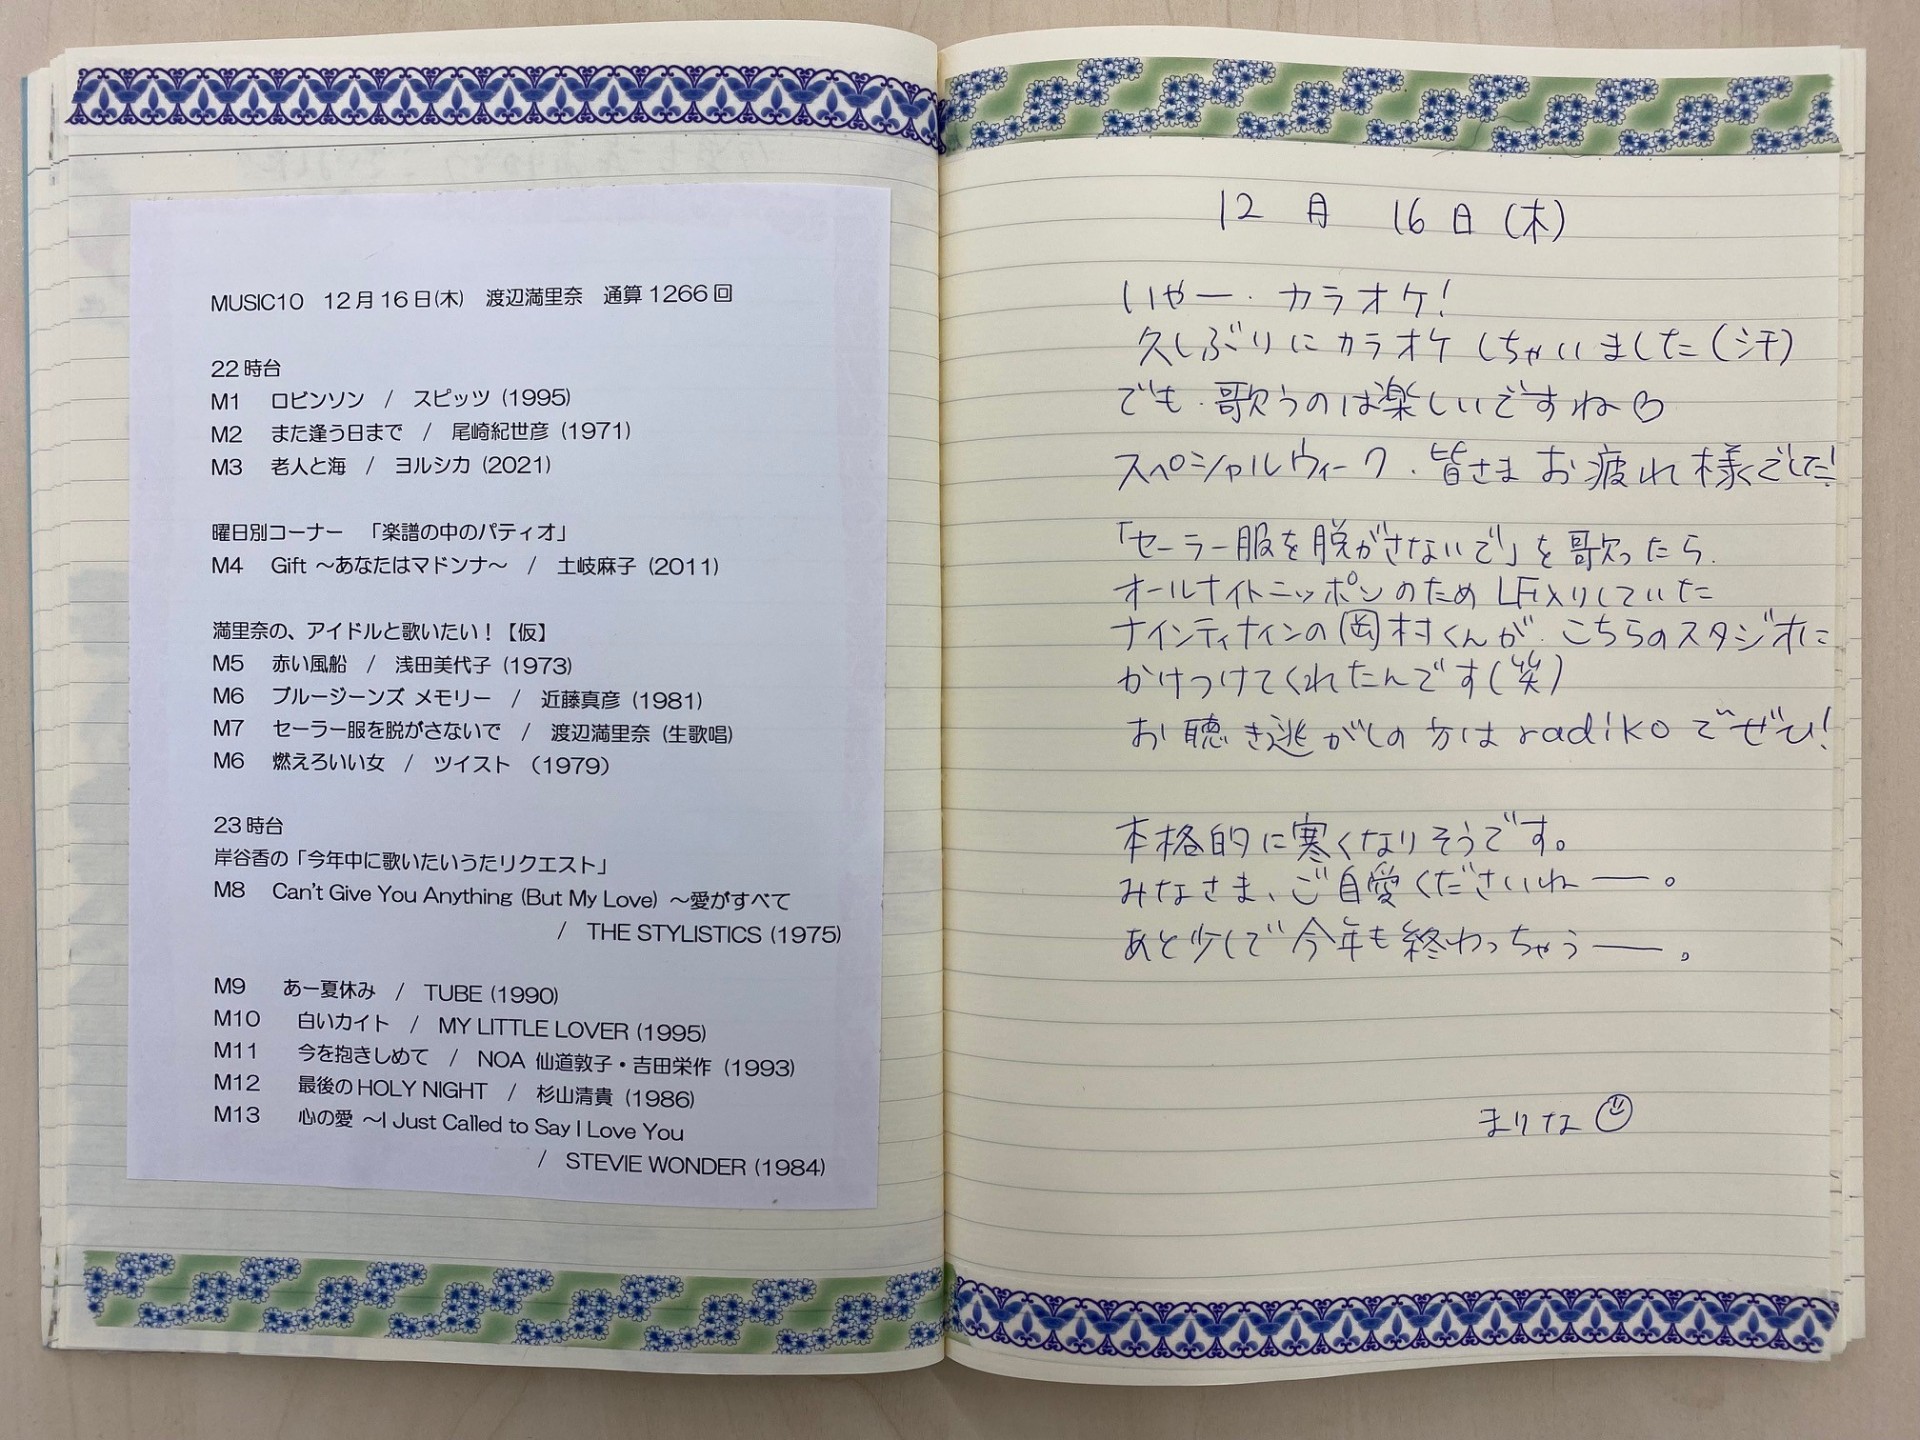 MUSIC10　12月16日(木)　渡辺満里奈　通算1266回
22時台
M1　ロビンソン　/　スピッツ (1995)
M2　また逢う日まで　/　尾崎紀世彦 (1971)
M3　老人と海　/　ヨルシカ (2021)
曜日別コーナー　「楽譜の中のパティオ」
M4　Gift ～あなたはマドンナ～　/　土岐麻子 (2011)
満里奈の、アイドルと歌いたい！【仮】
M5　赤い風船　/　浅田美代子 (1973)
M6　ブルージーンズ メモリー　/　近藤真彦 (1981)
M7　セーラー服を脱がさないで　/　渡辺満里奈 (生歌唱)
M6　燃えろいい女　/　ツイスト　(1979)
23時台
岸谷香の「今年中に歌いたいうたリクエスト」
M8　Can't Give You Anything (But My Love) ～愛がすべて
/　THE STYLISTICS (1975)
M9　あー夏休み　/　TUBE (1990)
M10　白いカイト　/　MY LITTLE LOVER (1995)
M11　今を抱きしめて　/　NOA 仙道敦子・吉田栄作 (1993)
M12　最後のHOLY NIGHT　/　杉山清貴 (1986)
M13　心の愛 ～I Just Called to Say I Love You
/　STEVIE WONDER (1984)
12月 16日(木)
いやー.カラオケ!
久しぶりにカラオケしちゃいました(汗)
でも.歌うのは楽しいですね♡
スペシャルウィーク.皆さまお疲れ様でした!
「セーラー服を脱がさないで」を歌ったら.
オールナイトニッポンのためLF入りしていた
ナインティナインの岡村くんが.こちらのスタジオに
かけつけてくれたんです(笑)
お聴き逃がしの方はradikoでぜひ!
本格的に寒くなりそうです。
みなさま、ご自愛くださいねー。
あと少しで今年も終わっちゃうー。
まりな